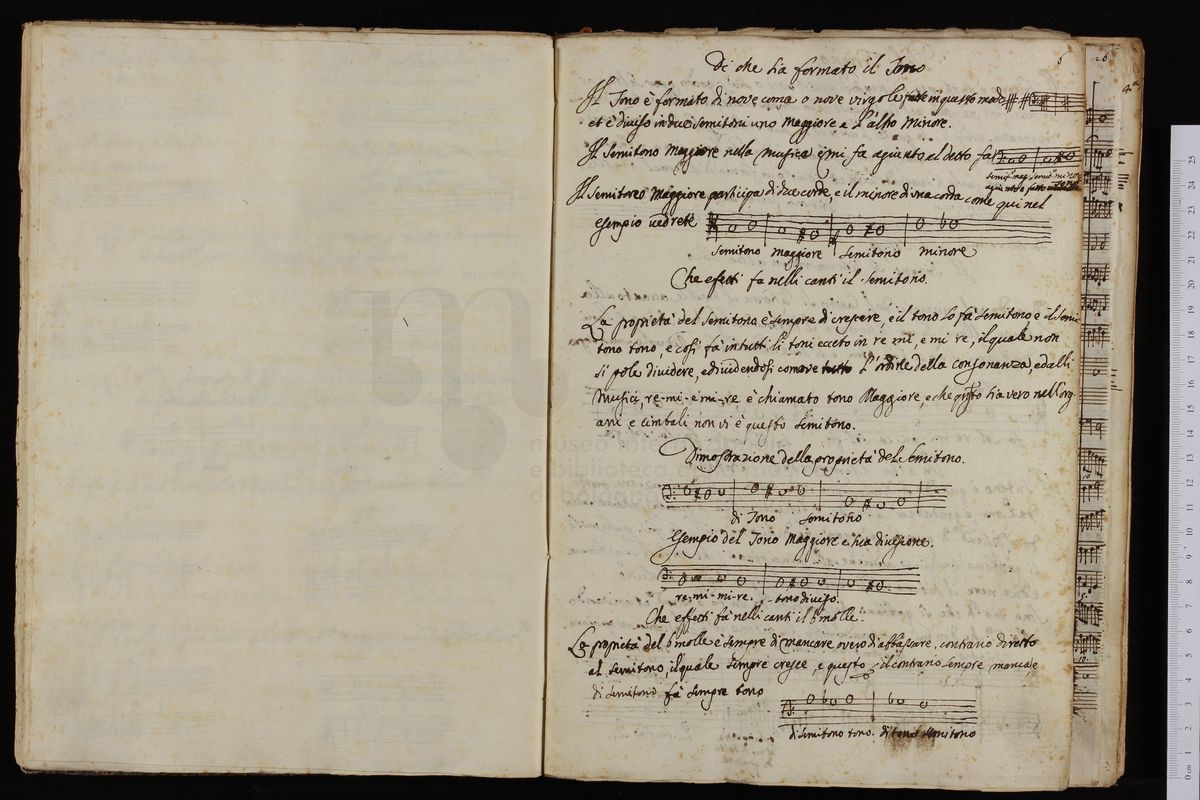 Di che sia formato il Tono
6
26
Il Tono è formato di nove coma o nove virgole fatte in questo modo
et è diviso in due semitoni uno Maggiore e l'altro minore.
Il semitono Maggiore nella musica è mi fa agiunto al detto fa
semit.º mag. semit.º minor
agiunto e fatto tono
Il semitono Maggiore participa di due corde, e il minore di una corda come qui nel
esempio vedrete
semitono maggiore semitono minore
Che efetti fa nelli canti il semitono.
La proprietà del semitono è sempre di crescere, e il tono lo fà semitono e il semi
tono tono, e così fà in tutti li toni ecceto in re mi, e mi re, il quale non
si pole dividere, e dividendosi comove tutto l'ordine della consonanza, e dalli
Musici, re-mi- e mi-re è chiamato tono Maggiore, e che questo sia vero nell'org-
ani e cimbali non vi è questo semitono.
museo
e biblioteca
di bologna
Dimostrazione della proprietà del semitono.
di Tono semitono
Esempio del Tono Maggiore e sua divisione.
re-mi-mi-re. tono diviso.
Che effetti fà nelli canti il b molle.
La proprietà del b molle è sempre di mancare overo di abbassare, contrario diretto
al semitono, il quale sempre cresce, e questo il contrario sempre manca, e
di semitono fà sempre tono
di semitono tono. di tono semitono